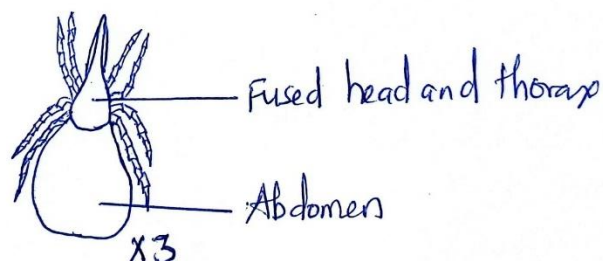 Fused head and thorax
Abdomen
X3